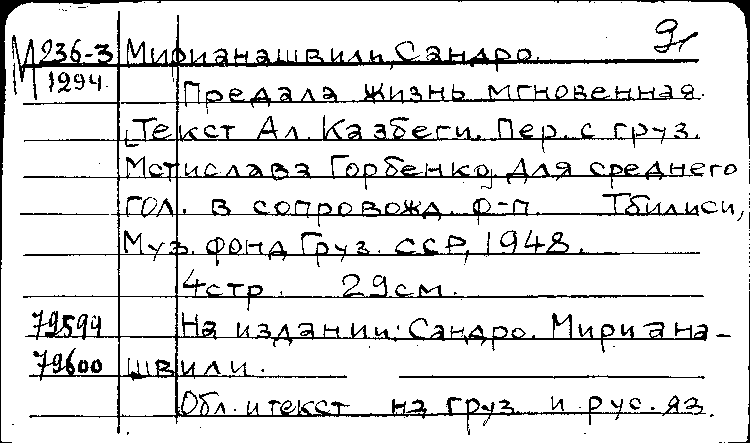 М 236-3 Мирианашвили, Сандро. 9
1294
Предала жизнь мгновенная.
[Текст Ал. Казбеги. Пер. с груз.
Мстислава Горбенко]. Для среднего
гол. в сопровожд. ф-п. Тбилиси,
Муз. фонд Груз. ССР, 1948.
4 стр. 29 см.
79599 На издании: Сандро. Мириана-
79600 швили.
Обл. и текст на груз и рус. яз.